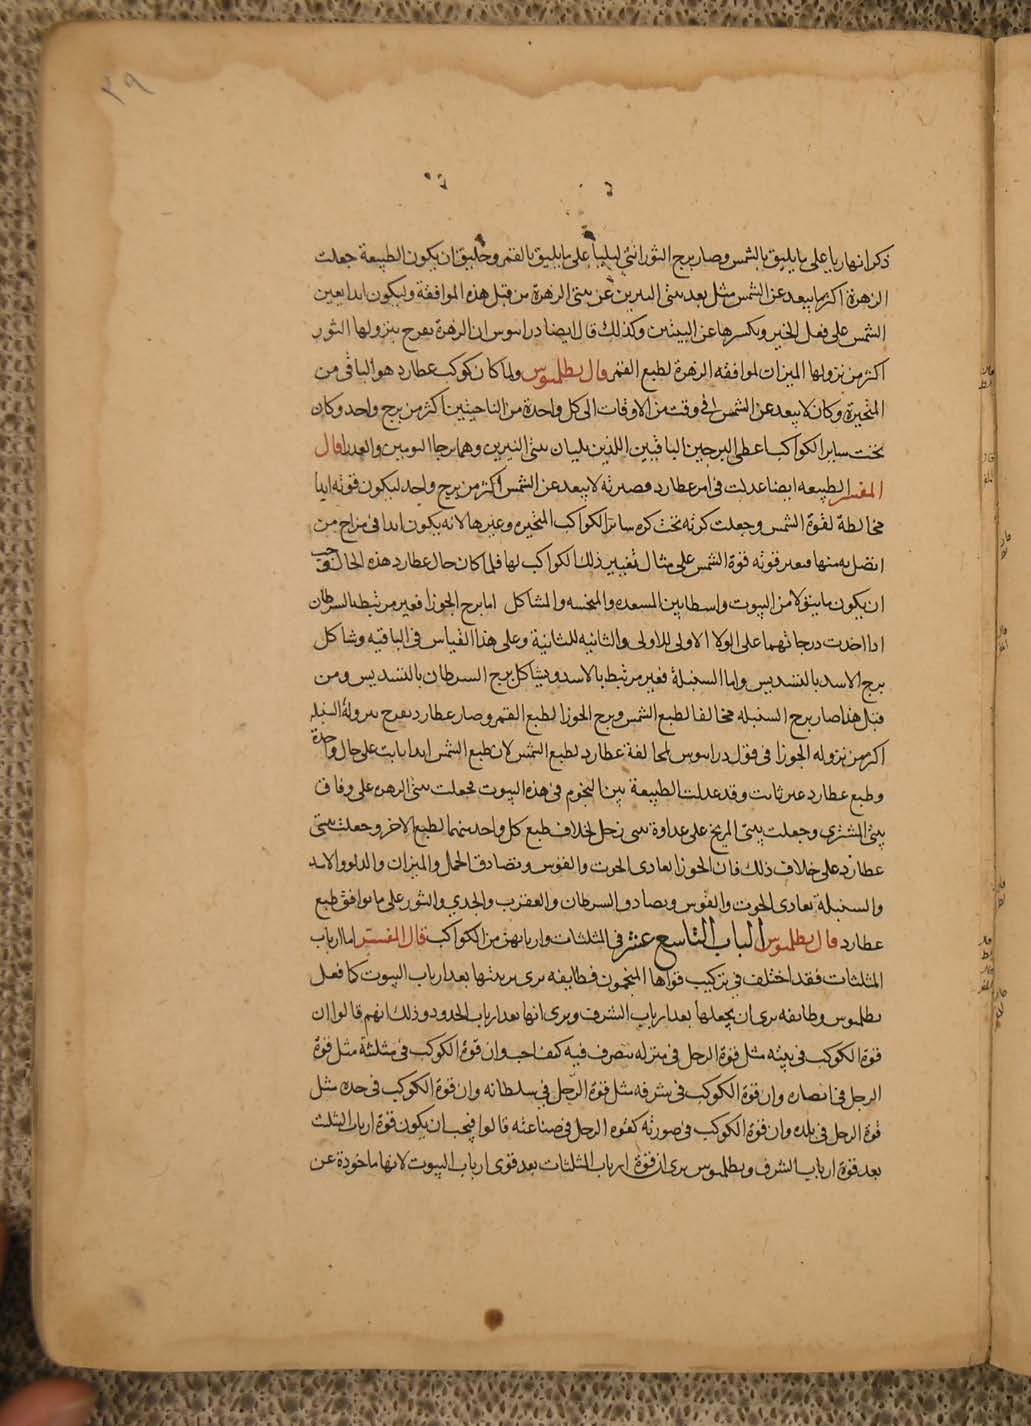 ٢٩
ذكرا نهاريا على ما يليق بالشمس وصار برج الثور انثى ليليا على ما يليق بالقمر وخليق ان يكون الطبيعة جعلت
الزهرة اكثر ما يبعد عن الشمس مثل بعد بيتى النيرين عن بيتى الزهرة من قبل هذه الموافقة وليكون ابدا يعين
الشمس على فعل الخير ويكسرها عن اليبس وكذلك قال ايضا دراسوس ان الزهرة تفرح بنزولها الثور
اكثر من نزولها الميزان لموافقه الزهرة لطبع القمر قال بطلميوس ولما كان كوكب عطارد هو الباقى من
المتحيرة وكان لا يبعد عن الشمس فى وقت من الاوقات الى كل واحدة من الناحيتين اكثر من برج واحد وكان
تحت ساير الكواكب اعطى البرجين الباقيين اللذين يليان بيتى النيرين وهما برجا التومين والعذرا قال
المفسر الطبيعه ايضا عدلت فى امر عطارد فصيرته لا يبعد عن الشمس اكثر من برج واحد ليكون قوته ابدا
مخالطة لقوة الشمس وجعلت كرته تحت كره ساير الكواكب المتحيره وغيرها لانه يكون ابدا فى مزاج من
اتصل به منها فيغير قوته قوة الشمس على مثال تغيير ذلك الكواكب لها فلما كان حال عطارد هذه الحال وجب
ان يكون ما يتولا من البيوت واسطا بين المسعده والمنحسه والمشاكل اما برج الجوزا فغير مرتبط بالسرطان
اذا اخذت درجاتهما على الولا الاولى للاولى والثانيه للثانية وعلى هذا القياس فى الباقيه وشاكل
برج الاسد بالتسديس واما السنبلة فغير مرتبط بالاسد ويشاكل برج السرطان بالتسديس ومن
قبل هذا صار برج السنبله مخالفا لطبع الشمس وبرج الجوزا لطبع القمر وصار عطارد يفرح بنزوله السنبله
اكثر من نزوله الجوزا فى قول دراسوس لمخالفة عطارد لطبع الشمس لان طبع الشمس ابدا ثابت على حال واحدة
وطبع عطارد غير ثابت وقد عدلت الطبيعة بين النجوم فى هذه البيوت فجعلت بيتى الزهره على وفاق
بيتى المشترى وجعلت بيتى المريخ على عداوة بيتى زحل لخلاف طبع كل واحد منهما لطبع الاخر وجعلت بيتى
عطارد على خلاف ذلك فان الجوزا يعادى الحوت والقوس ويصادق الحمل والميزان والدلو والاسد
والسنبلة تعادى الحوت والقوس ويصادق السرطان والعقرب والجدي والثور على ما يوافق طبع
عطارد قال بطلميوس الباب التاسع عشر فى المثلثات واربابهن من الكواكب قال المفسر اما ارباب
المثلثات فقد اختلف فى تركيب قواها المنجمون فطايفه يرى يريدنها بعد ارباب البيوت كما فعل
بطلميوس وطايفه يرى ان يجعلها بعد ارباب الشرف ويرى انها بعد ارباب الحدود وذلك انهم قالوا ان
قوة الكوكب فى بيته مثل قوة الرجل فى منزله يتصرف فيه كيف احب وان قوة الكوكب فى مثلثة مثل قوة
الرجل فى انصاره وان قوة الكوكب فى شرفه مثل قوة الرجل فى سلطانه وان قوة الكوكب فى حده مثل
قوة الرجل فى بلده وان قوة الكوكب فى صورته كقوه الرجل فى صناعته قالوا فيجب ان يكون قوة ارباب المثلث
بعد قوة ارباب الشرف وبطلميوس يرى ان قوة ارباب المثلثات بعد قوى ارباب البيوت لانها ماخوذة عن